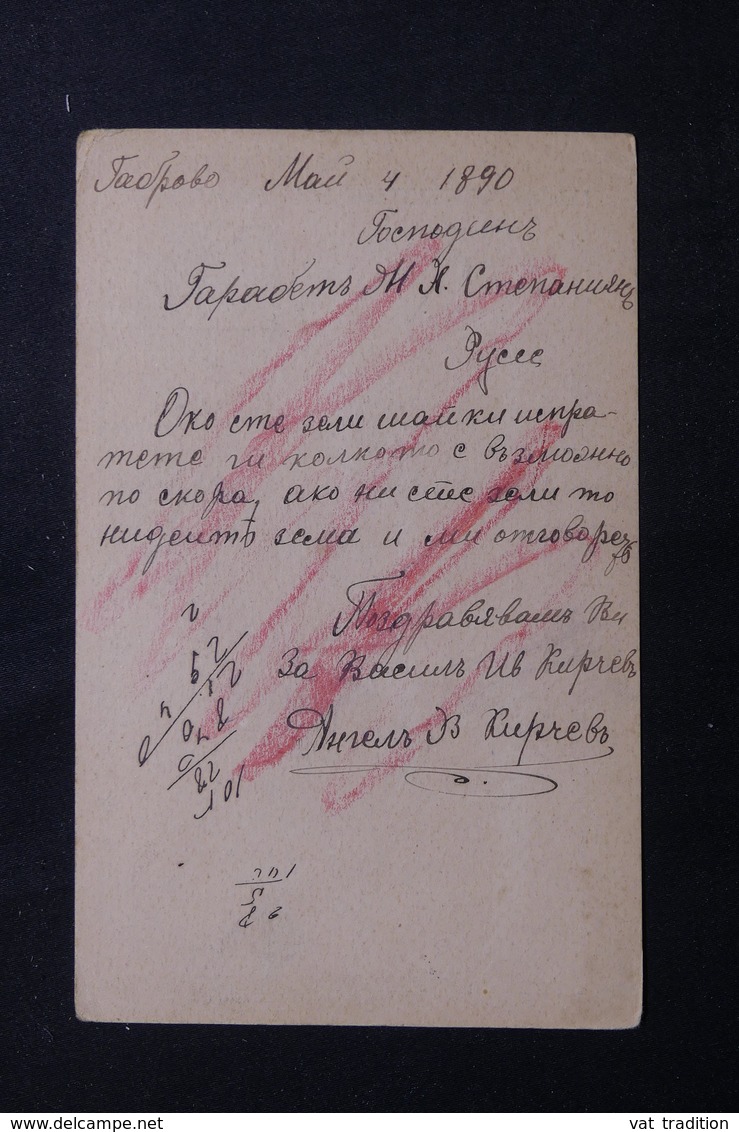 Габрово Май 4 1890
Господинъ
Гарабетъ М Х. Степаниянъ
Русе
Око сте зели шайки испра-
тете ги колкото с възможно
по скора, ако ни сте зели то
нидеите зема и ми отговорете
Поздравявамъ Ви
За Василъ Ив Кирчевъ
Ангелъ В Кирчевъ
vat tradition